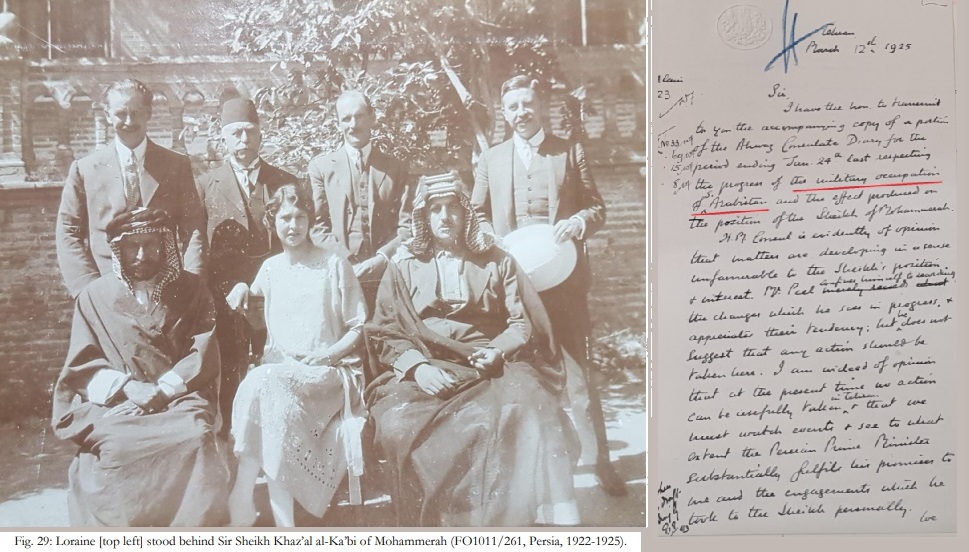 Fig. 29: Loraine [top left] stood behind Sir Sheikh Khaz'al al-Ka'bi of Mohammerah (FO1011/261, Persia, 1922-1925).
Tehran
March 12th. 1925
23
Sir
I have the hon. to transmit
to you the accompanying copy of a portion
of the Ahwaz Consulate Diary for the
period ending Jan. 24th last respecting
the progress of the military occupation
of Arabistan and the effect produced on
the position of the Sheikh of Mohammerah.
H.M. Consul is evidently of opinion
that matters are developing in a sense
unfavourable to the Sheikh's position
& interest. Mr. Peel confines himself to recording
the changes which he sees in progress, &
appreciates their tendency; but he does not
suggest that any action should be
taken here. I am indeed of opinion
that at the present time no action
can be usefully taken, & that we
must watch events & see to what
extent the Persian Prime Minister
substantially fulfils his promises to
me and the engagements which he
took to the Sheikh personally.
We